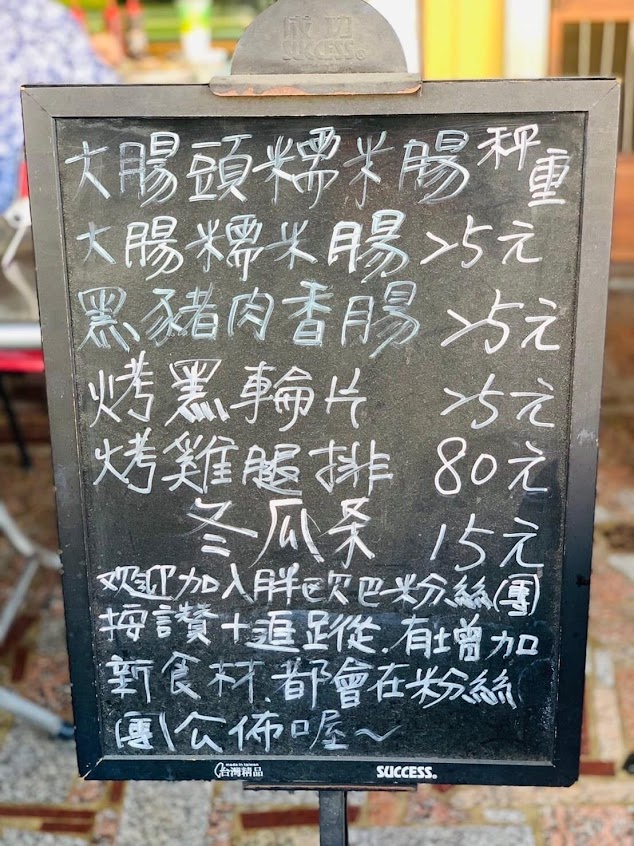 成功
SUCCESS®
大腸頭糯米腸 秤重
大腸糯米腸 25元
黑豬肉香腸 25元
烤黑輪片 25元
烤雞腿排 80元
冬瓜条 15元
欢迎加入胖欧巴粉絲(團)
按讚+追蹤.有增加
新食材.都會在粉絲
(團)公佈喔～
made in taiwan
台灣精品 SUCCESS®